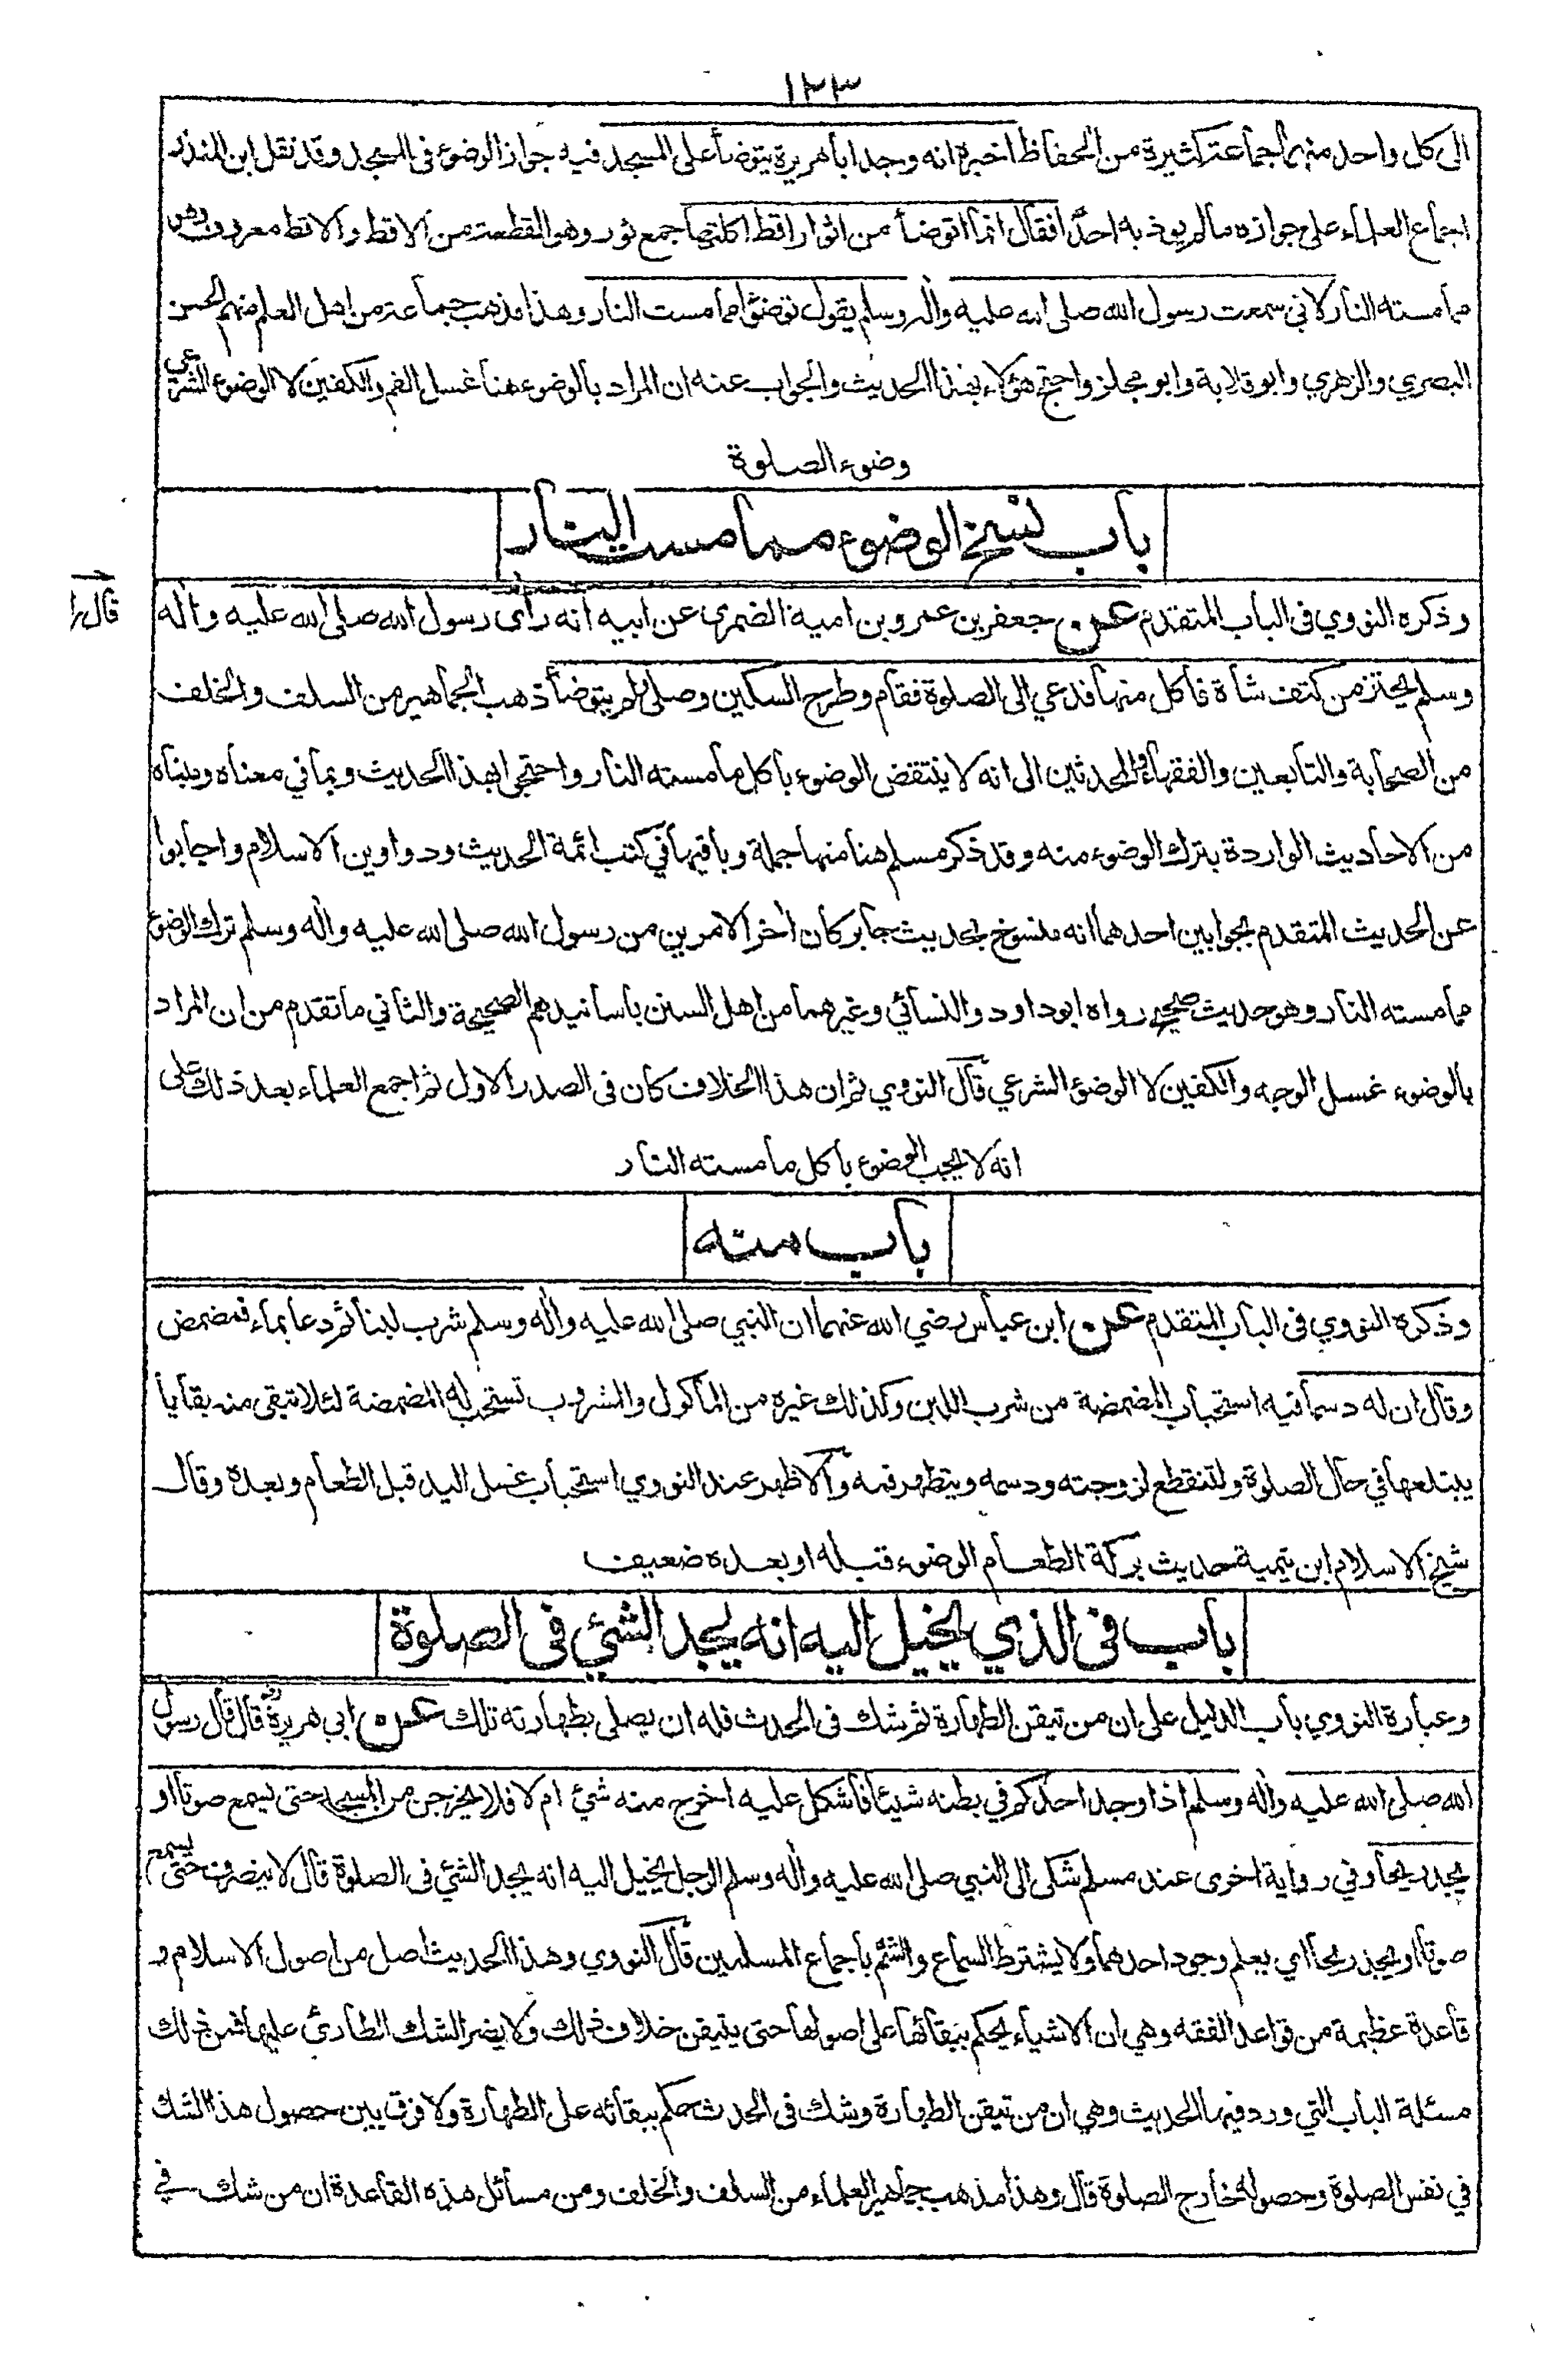 ١٢٣
الى كل واحد منهما جماعة كثيرة من الحفاظ اخبره انه وجد ابا هريرة يتوضأ على المسجد فيه جواز الوضوء فى المسجد وقد نقل ابن المنذر
اجماع العلماء على جوازه ما لم يوذ به احدًا فقال انما اتوضأ من اثوار اقط اكلتها جمع ثور وهو القطعة من الاقط والاقط معروف وهو
مما مسته النار لاني سمعت رسول الله صلى الله عليه واله وسلم يقول توضؤا مما مست النار وهذا مذهب جماعة من اهل العلم منهم الحسن
البصري والزهري وابو قلابة وابو مجلز واحتج هؤلاء بهذا الحديث والجواب عنه ان المراد بالوضوء هنا غسل الفم والكفين لا الوضوء الشرعي
وضوء الصلوة
باب نسخ الوضوء مما مست النار
وذكره النووي فى الباب المتقدم عن جعفر بن عمرو بن امية الضمرى عن ابيه انه رأى رسول الله صلى الله عليه واله
قال را
وسلم يحتز من كتف شاة فاكل منها فدعي الى الصلوة فقام وطرح السكين وصلى ولم يتوضأ ذهب الجماهير من السلف والخلف
من الصحابة والتابعين والفقهاء والمحدثين الى انه لا ينتقض الوضوء باكل ما مسته النار واحتجوا بهذا الحديث وبما في معناه ومبناه
من الاحاديث الواردة بترك الوضوء منه وقد ذكر مسلم هنا منها جملة وباقيها في كتب ائمة الحديث ودواوين الاسلام واجابوا
عن الحديث المتقدم بجوابين احدهما انه منسوخ بحديث جابر كان اخر الامرين من رسول الله صلى الله عليه واله وسلم ترك الوضوء
مما مسته النار وهو حديث صحيح رواه ابو داود والنسائي وغيرهما من اهل السنن باسانيدهم الصحيحة والثاني ما تقدم من ان المراد
بالوضوء غسل الوجه والكفين لا الوضوء الشرعي قال النووي ثم ان هذا الخلاف كان فى الصدر الاول ثم اجمع العلماء بعد ذلك على
انه لا يجب الوضوء باكل ما مسته النار
باب منه
وذكره النووي فى الباب المتقدم عن ابن عباس رضي الله عنهما ان النبي صلى الله عليه واله وسلم شرب لبنا ثم دعا بماء فمضمض
وقال ان له دسما فيه استحباب المضمضة من شرب اللبن وكذلك غيره من الماكول والمشروب تستحب له المضمضة لئلا تبقى منه بقايا
يبتلعها في حال الصلوة ولتنقطع لزوجته ودسمه ويتطهر فمه والاظهر عند النووي استحباب غسل اليد قبل الطعام وبعده وقال
شيخ الاسلام ابن تيمية حديث بركة الطعام الوضوء قبله او بعده ضعيف
باب فى الذي يخيل اليه انه يجد الشئ فى الصلوة
وعبارة النووي باب الدليل على ان من تيقن الطهارة ثم شك فى الحدث فله ان يصلى بطهارته تلك عن ابي هريرة رض قال قال رسول
الله صلى الله عليه واله وسلم اذا وجد احدكم في بطنه شيئا فاشكل عليه اخرج منه شئ ام لا فلا يخرجن من المسجد حتى يسمع صوتا او
يجد ريحا وفي رواية اخرى عند مسلم شكى الى النبي صلى الله عليه واله وسلم الرجل يخيل اليه انه يجد الشئ فى الصلوة قال لا ينصرف حتى يسمع
صوتا او يجد ريحا اي يعلم وجود احدهما ولا يشترط السماع والشم باجماع المسلمين قال النووي وهذا الحديث اصل من اصول الاسلام و
قاعدة عظيمة من قواعد الفقه وهي ان الاشياء يحكم ببقائها على اصولها حتى يتيقن خلاف ذلك ولا يضر الشك الطارئ عليها فمن ذلك
مسئلة الباب التي ورد فيها الحديث وهي ان من تيقن الطهارة وشك فى الحدث حكم ببقائه على الطهارة ولا فرق بين حصول هذا الشك
في نفس الصلوة وحصوله خارج الصلوة قال وهذا مذهب جماهير العلماء من السلف والخلف ومن مسائل هذه القاعدة ان من شك في